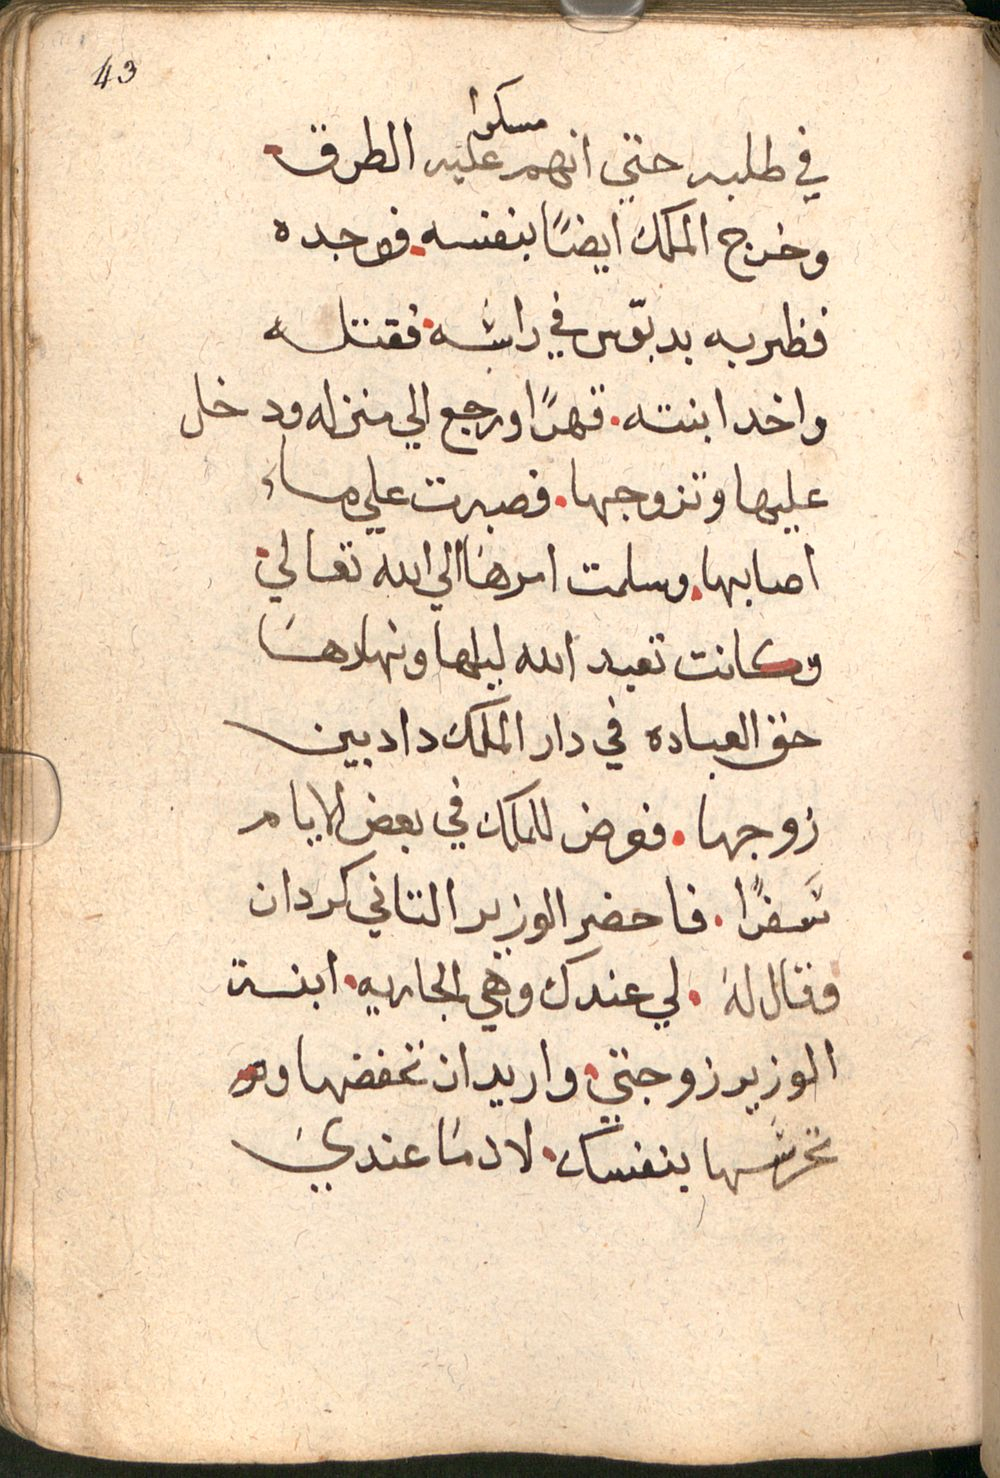 43
مسكوا
في طلبه حتي انهم عليه الطرق.
وخرج الملك ايضًا بنفسه. فوجده
فظربه بدبّوس في راسه. فقتله
واخد ابنته. قهرًا ورجع الي منزله ودخل
عليها وتزوجها. فصبرت علي ماء
اصابها. وسلمت امرها الي الله تعالي.
وكانت تعبد الله ليلها ونهارها
حق العباده في دار الملك دادبين
زوجها. فعرض للملك في بعض الايام
سفرًا. فاحضر الوزير التاني كردان
وقال له. لي عندك وهي الجاريه. ابنة
الوزير زوجتي. واريد ان تحفضها و
تحرسها بنفسك. لان ما عندي